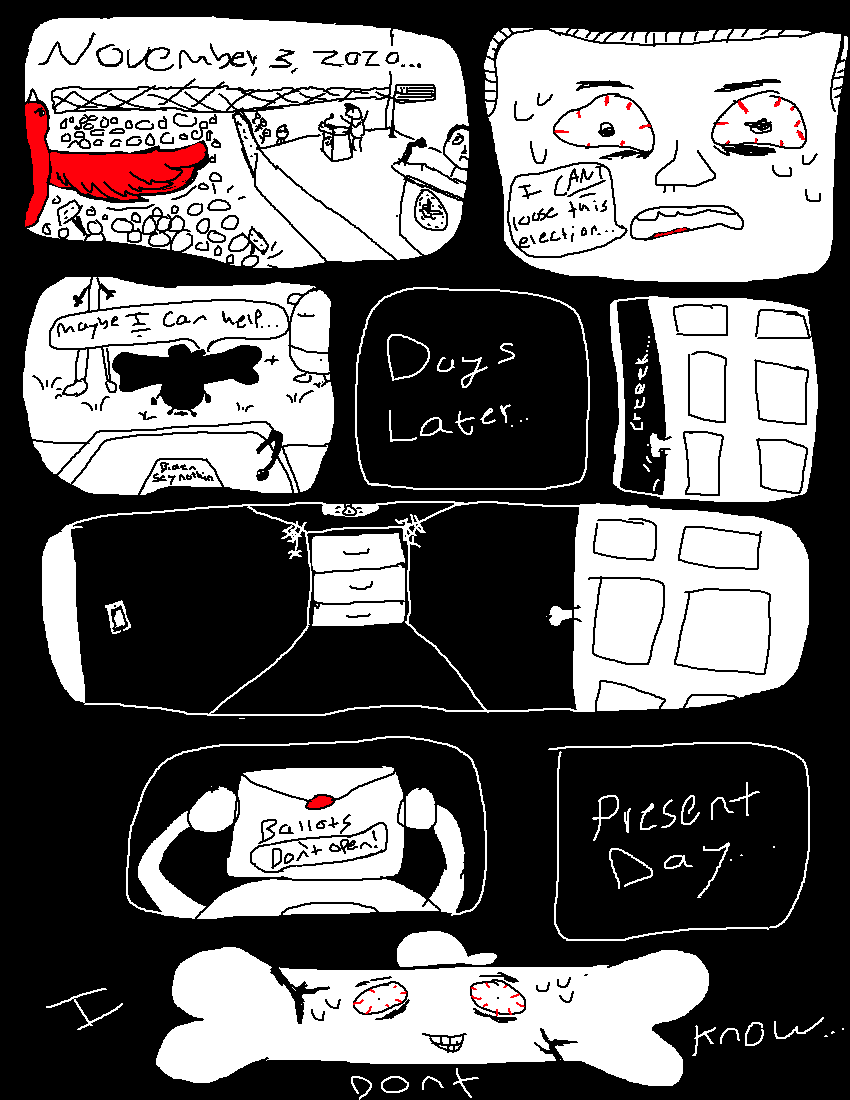 November, 3, 2020...
I CAN'T
loose this
election...
Maybe I can help...
Days
Later...
creeek.....
Ballots
Don't open!
Present
Day...
I
Know...
Dont